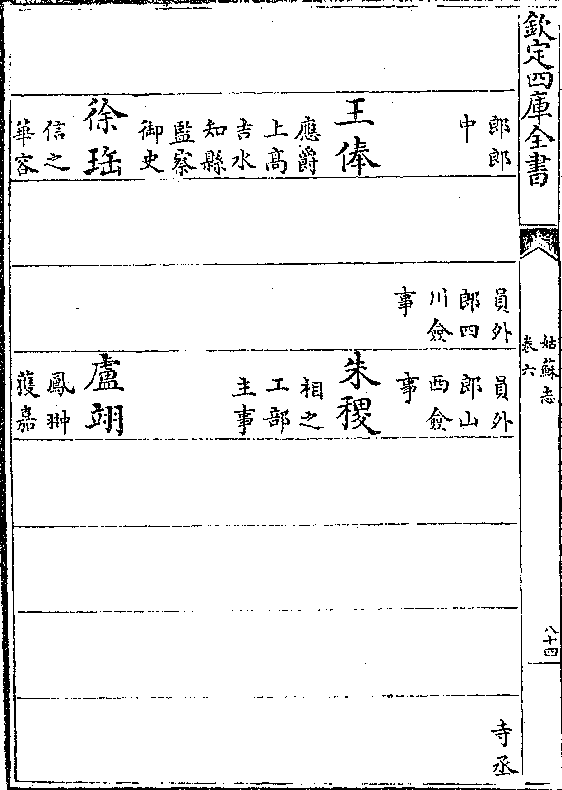 欽定四庫全書
姑蘇志
卷六
八十四
郎郎
中
王俸
應爵
上高
吉水
知縣
監察
御史
徐瑶
信之
華容
員外
郎四
川僉
事
員外
郎山
西僉
事
朱稷
相之
工部
主事
盧翊
鳳翀
獲嘉
寺丞